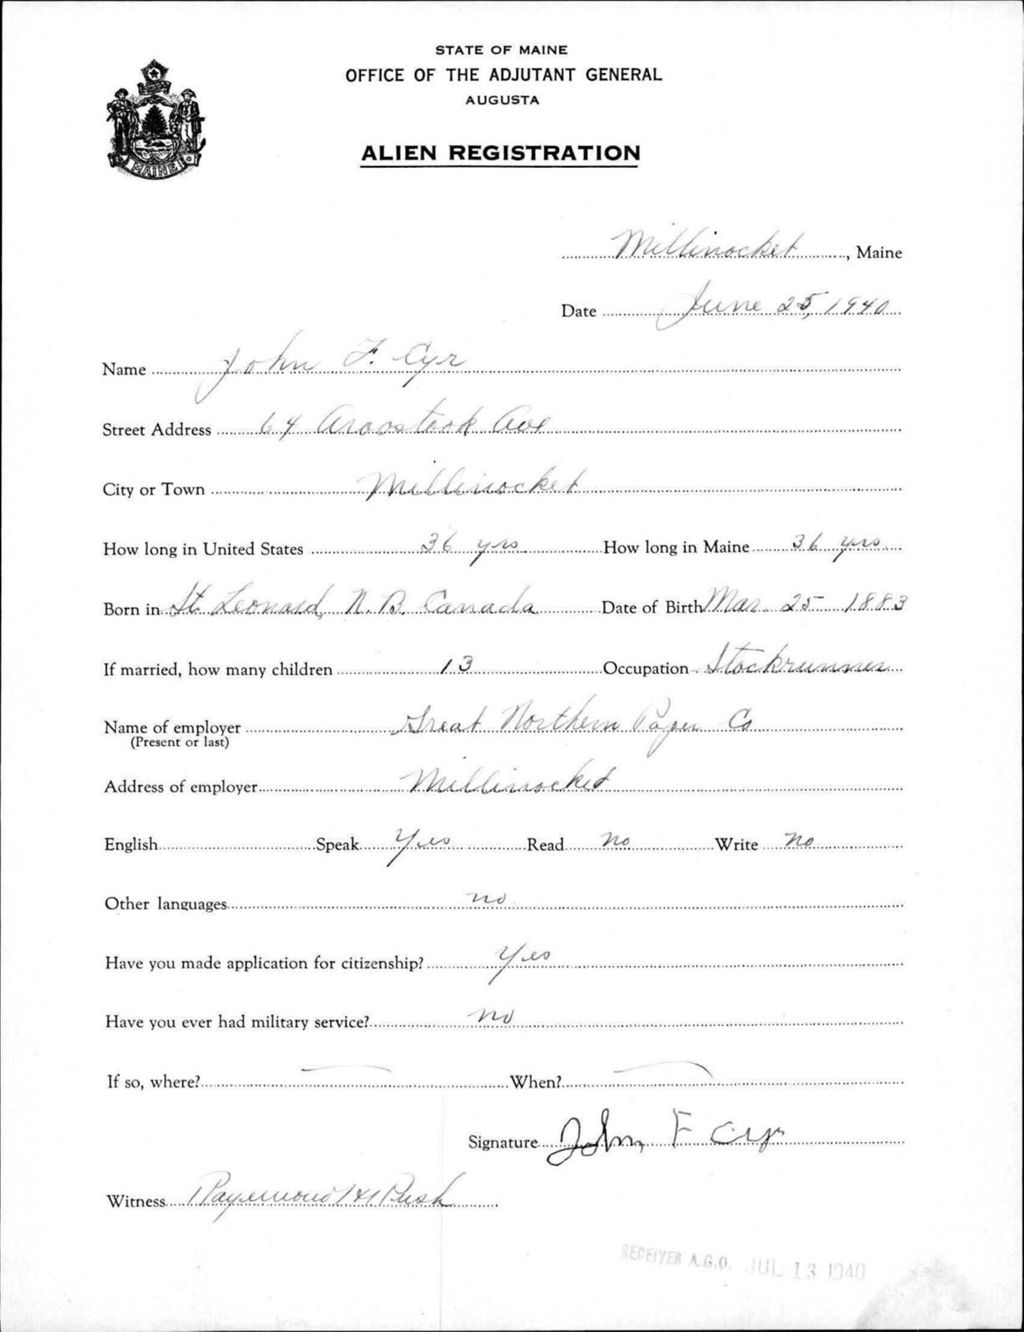 STATE OF MAINE
OFFICE OF THE ADJUTANT GENERAL
AUGUSTA
ALIEN REGISTRATION
MAINE
Millinocket, Maine
Date June 25, 1940
Name John F. Cyr
Street Address 64 Aroostook Ave
City or Town Millinocket
How long in United States 36 yrs How long in Maine 36 yrs
Born in St. Leonard, N.B. Canada Date of Birth Mar 25 1883
If married, how many children 13 Occupation Stockrunner
Name of employer Great Northern Paper Co
(Present or last)
Address of employer Millinocket
English Speak Yes Read No Write No
Other languages no
Have you made application for citizenship? Yes
Have you ever had military service? no
If so, where? — When? —
Signature John F Cyr
Witness Raymond H
RECEIVED A.G.O. JUL 13 1940